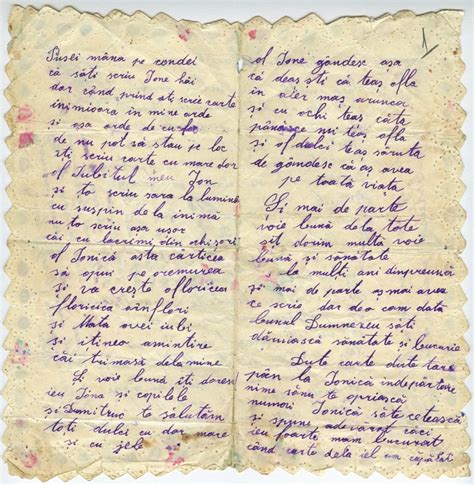 Pusei mâna pe condei
că săti scriu Ione hăi
dar când prind at scrie carte
inimioara în mine arde
și așa arde de cu foc
de nu pot să stau pe loc
sti scriu carte cu mare dor
of Iubitul meu Ion
și to scriu sara la lumine
cu suspin de la inimă
nu to scriu așa ușor
căi cu lacrimi din
of Ionică asta cărticea
să opui pe oremurea
și va crește ofloricea
floricica oinflori
și Mata ovei iubi
și itineo amintire
căi trimasă delamine
Și voie bună iti doresc
ieu Iona și copilele
și Dumitruc te salutăm
toti dulci cu dor mare
și cu jele
1
of Ione gândesc așa
că deas sti că teaș afla
in aier maș arunca
și cu ochi teaș căta
pânăice nu teaș afla
și of dulci teaș săruta
de gândesc că aș avea
pe toată viața
Și mai de parte
voie bună dela tote
sit dorim multă voie
bună și sănătate
la multi ani dinpreună
și mai de parte aș mai avea
ce scrie dar deo com dată
bunul Dumnezeu săti
dăruiască sănătate și bucurie
Dute carte dute tare
păn la Ionică indepărtare
nime sănu te opriască
numai Ionică săte cetească
și spune adevărat căci
ieu foarte mam bucurat
când carte dela iel am căpătat